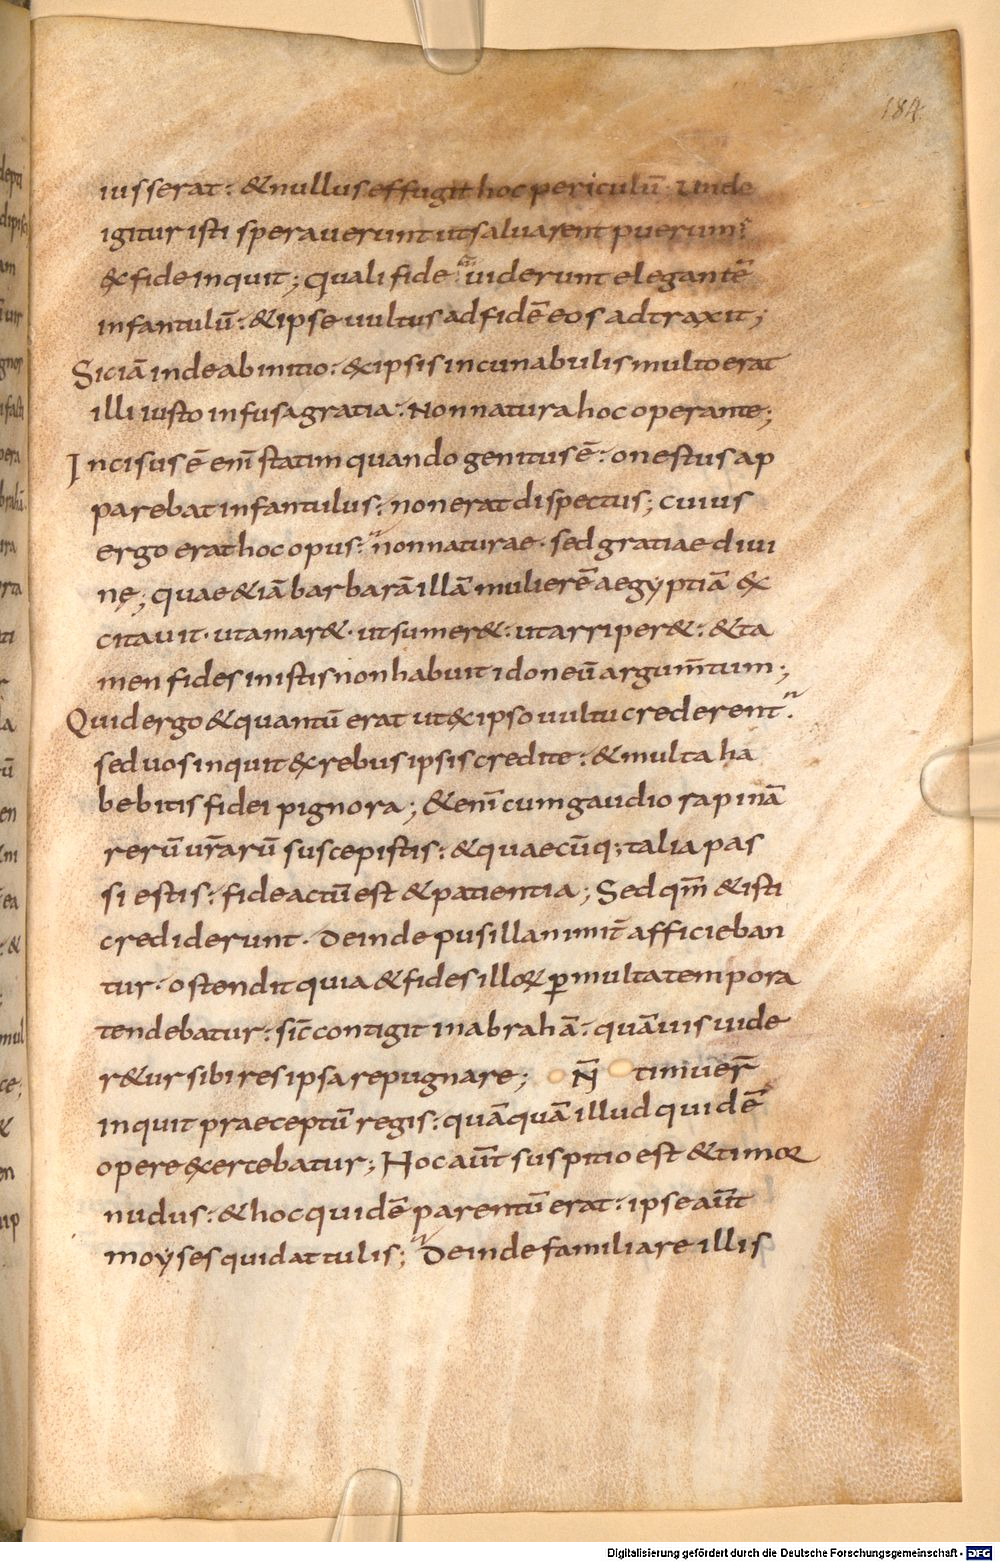 184
iusserat: & nullus effugit hoc periculū. Unde
igitur isti speraverunt ut salvarent puerum?
ex fide inquit; quali fide viderunt elegantē
infantulū: & ipse vultus ad fidē eos adtraxit;
Sic iā inde ab initio: & ipsis incunabulis multo erat
illi iusto infusa gratia. Non natura hoc operante;
Incisus ē enī statim quando genitus ē: onestus ap
parebat infantulus: non erat dispectus; cuius
ergo erat hoc opus: non naturae. sed gratiae divi
nę; quae &iā barbarā illā mulierē aegyptiā ex
citavit. ut amar&. ut sumer&: ut arriper&: & ta
men fides in istis non habuit idoneū argum̄tum;
Quid ergo & quantū erat ut ex ipso vultu crederent.
sed vos inquit ex rebus ipsis credite: & multa ha
bebitis fidei pignora; &enī cum gaudio rapinā
rerū vr̄arū suscepistis: & quaecūq; talia pas
si estis: fide actū est & patientia; Sed qm̄ & isti
crediderunt. Deinde pusillanimit̄ afficieban
tur. ostendit quia & fides illoꝝ ꝑ multa tempora
tendebatur: sic̄ contigit in abrahā: quāvis vide
r&ur sibi res ipsa repugnare; N̄ timuer̄
inquit praeceptū regis: quāquā illud quidē
opere exercebatur; Hoc aūt suspitio est & timor
nudus: & hoc quidē parentū erat: ipse aūt
moyses quid attulis; Deinde familiare illis
Digitalisierung gefördert durch die Deutsche Forschungsgemeinschaft - DFG